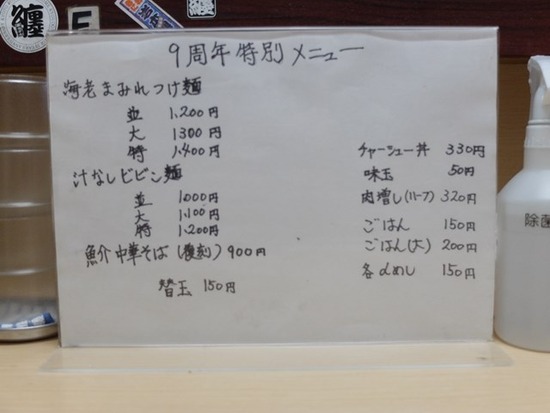 9周年特別メニュー
海老まみれつけ麺
並 1,200円
大 1300円
特 1,400円
汁なしビビン麺
並 1,000円
大 1,100円
特 1,200円
魚介中華そば(復刻) 900円
替玉 150円
チャーシュー丼 330円
味玉 50円
肉増し(ハーフ) 320円
ごはん 150円
ごはん(大) 200円
各〆めし 150円
除菌